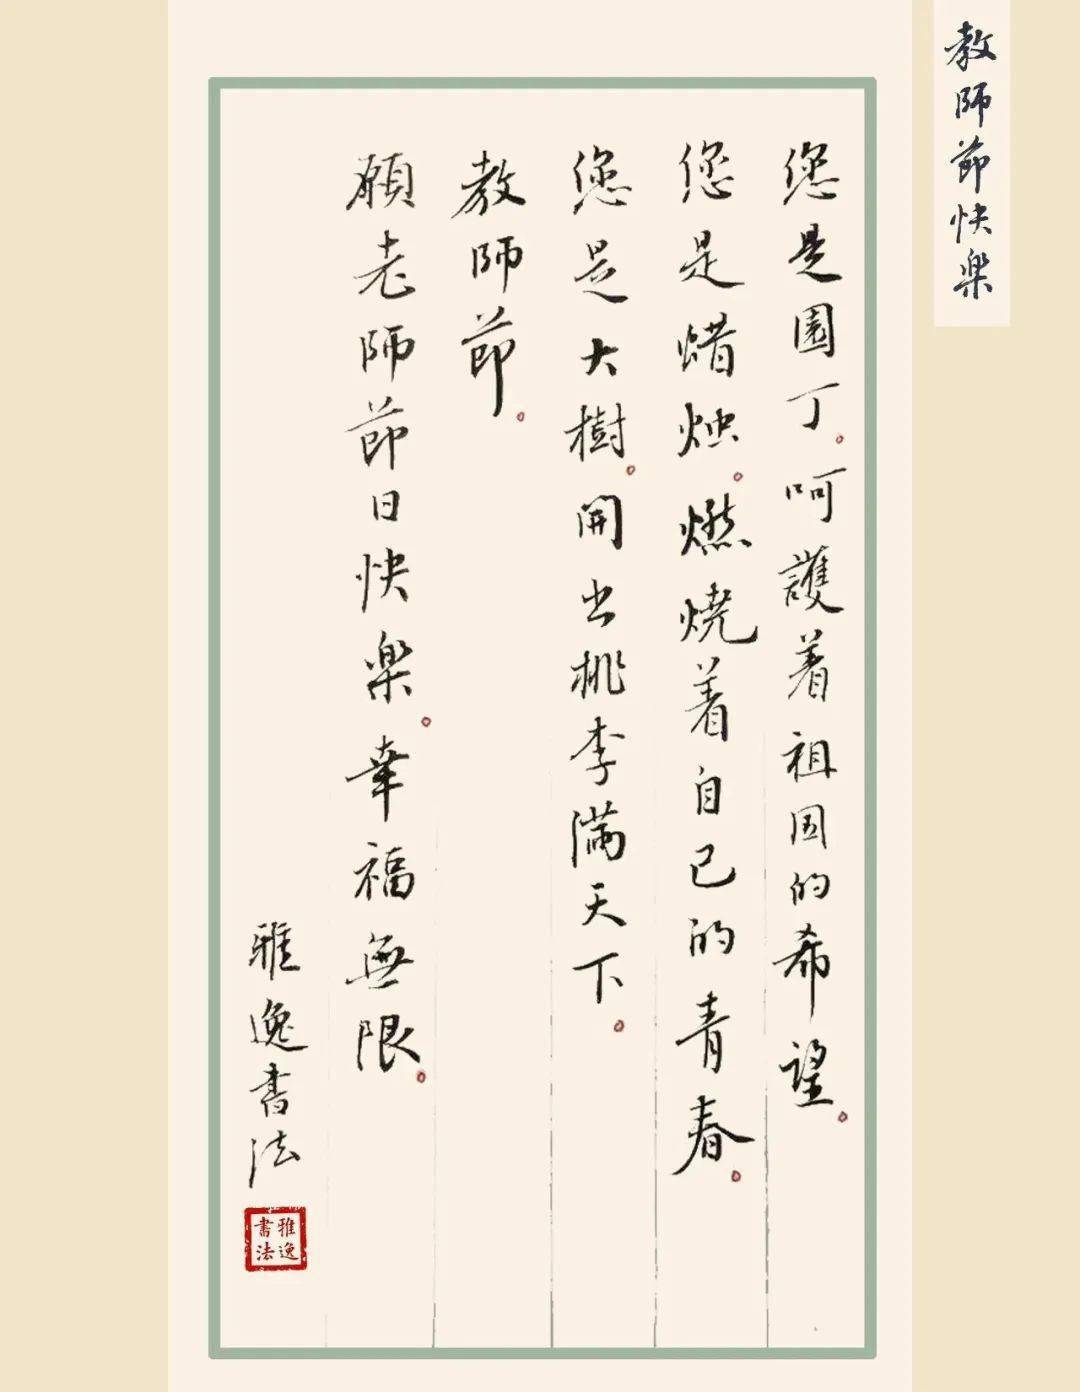 教師節快樂
您是園丁。呵護着祖国的希望。
您是蜡烛。燃烧着自己的青春。
您是大樹。開出桃李滿天下。
教師節。
願老師節日快樂。幸福無限。
雅逸書法
雅逸
書法